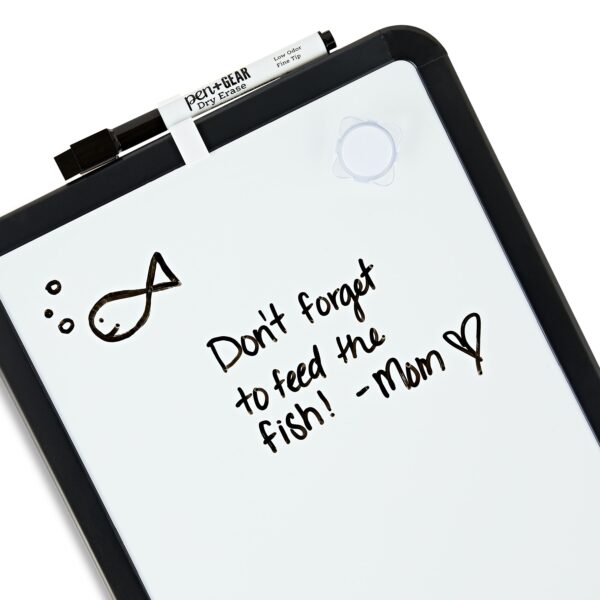 pen+GEAR
Dry Erase
Low Odor
Fine Tip
Don't forget
to feed the
fish! -Mom